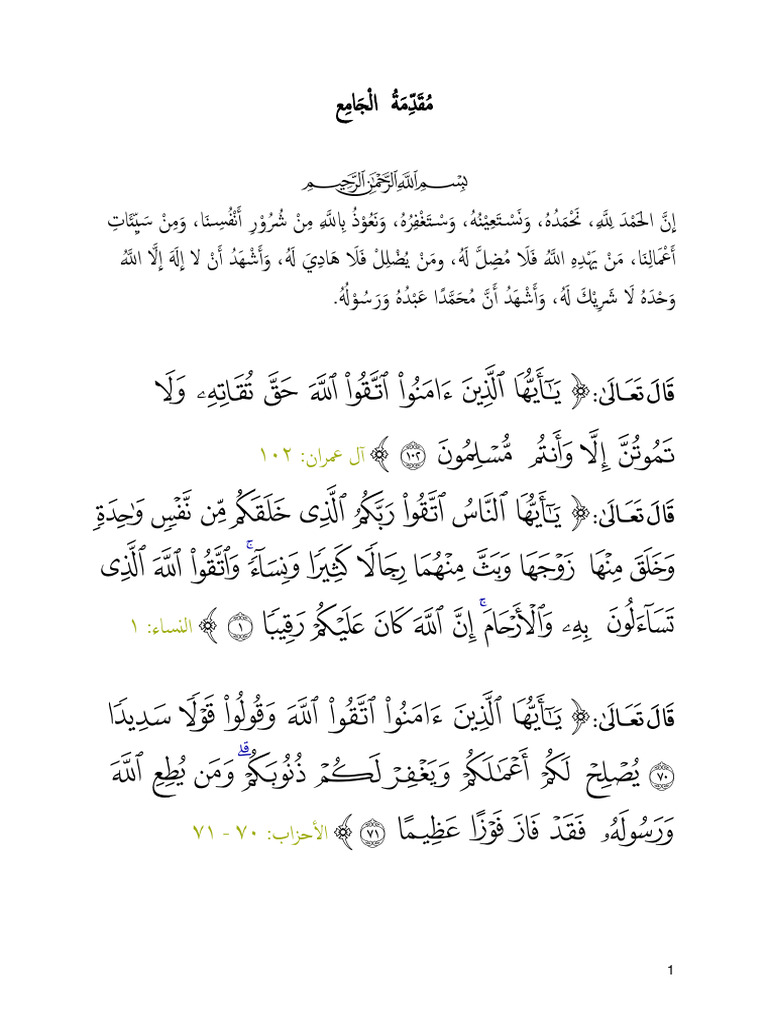 مُقَدِّمَةُ الْجَامِع
بِسْمِ اللَّهِ الرَّحْمَٰنِ الرَّحِيمِ
إِنَّ الحَمْدَ لِلَّهِ، نَحْمَدُهُ، وَنَسْتَعِيْنُهُ، وَسْتَغْفِرُهُ، وَنَعُوْذُ بِاللَّهِ مِنْ شُرُوْرِ أَنْفُسِنَا، وَمِنْ سَيِّئَاتِ
أَعْمَالِنَا، مَنْ يَهْدِهِ اللَّهُ فَلَا مُضِلَّ لَهُ، ومَنْ يُضْلِلْ فَلَا هَادِيَ لَهُ، وَأَشْهَدُ أَنْ لا إِلَهَ إِلَّا اللَّهُ
وَحْدَهُ لَا شَرِيْكَ لَهُ، وَأَشْهَدُ أَنَّ مُحَمَّدًا عَبْدُهُ وَرَسُوْلُهُ.
قَالَ تَعَالَىٰ: ﴿ يَـٰٓأَيُّهَا ٱلَّذِينَ ءَامَنُوا۟ ٱتَّقُوا۟ ٱللَّهَ حَقَّ تُقَاتِهِۦ وَلَا
تَمُوتُنَّ إِلَّا وَأَنتُم مُّسْلِمُونَ ١٠٢ ﴾ آل عمران: ١٠٢
قَالَ تَعَالَىٰ: ﴿ يَـٰٓأَيُّهَا ٱلنَّاسُ ٱتَّقُوا۟ رَبَّكُمُ ٱلَّذِى خَلَقَكُم مِّن نَّفْسٍ وَٰحِدَةٍ
وَخَلَقَ مِنْهَا زَوْجَهَا وَبَثَّ مِنْهُمَا رِجَالًا كَثِيرًا وَنِسَآءً ۚ وَٱتَّقُوا۟ ٱللَّهَ ٱلَّذِى
تَسَآءَلُونَ بِهِۦ وَٱلْأَرْحَامَ ۚ إِنَّ ٱللَّهَ كَانَ عَلَيْكُمْ رَقِيبًا ١ ﴾ النساء: ١
قَالَ تَعَالَىٰ: ﴿ يَـٰٓأَيُّهَا ٱلَّذِينَ ءَامَنُوا۟ ٱتَّقُوا۟ ٱللَّهَ وَقُولُوا۟ قَوْلًا سَدِيدًا
٧٠ يُصْلِحْ لَكُمْ أَعْمَـٰلَكُمْ وَيَغْفِرْ لَكُمْ ذُنُوبَكُمْ ۗ وَمَن يُطِعِ ٱللَّهَ
وَرَسُولَهُۥ فَقَدْ فَازَ فَوْزًا عَظِيمًا ٧١ ﴾ الأحزاب: ٧٠ - ٧١
1